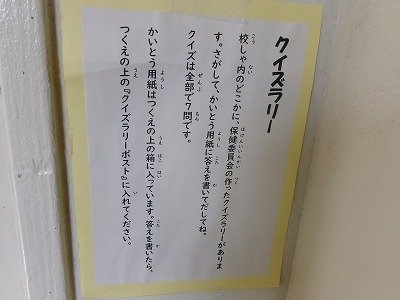 クイズラリー
校しゃ内のどこかに、保健委員会の作ったクイズラリーがありま
す。さがして、かいとう用紙に答えを書いてだしてね。
クイズは全部で7問です。
かいとう用紙はつくえの上の箱に入っています。答えを書いたら、
つくえの上の『クイズラリーポスト』に入れてください。